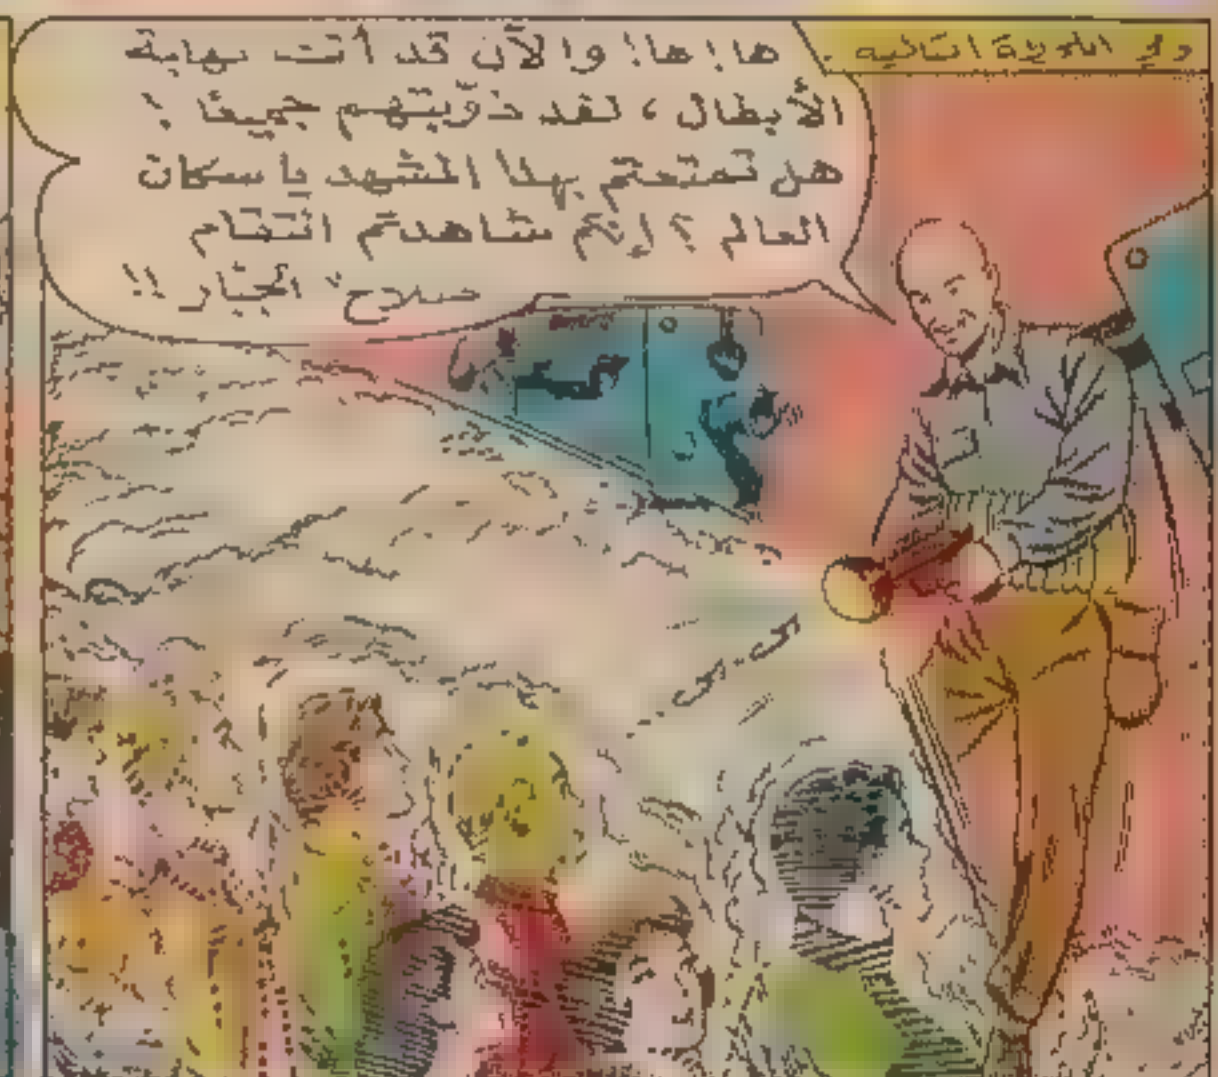 وفي اللحظة التالية .
ها! ها! والآن قد أتت نهاية
الأبطال ، لقد ذوّبتهم جميعًا !
هل تمتعتم بهذا المشهد يا سكان
العالم ؟ إنكم شاهدتم انتقام
"صلاح" الجبّار !!